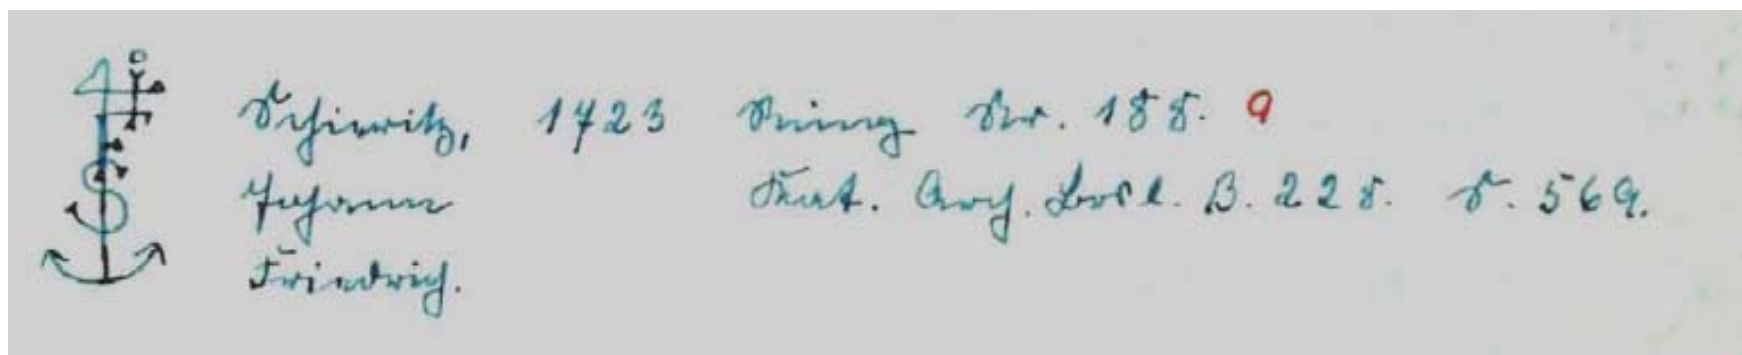 Schieritz, 1723 Ring Nr. 188. 9
Johann Stat. Arch. Brsl. B. 228. S. 569.
Friedrich.